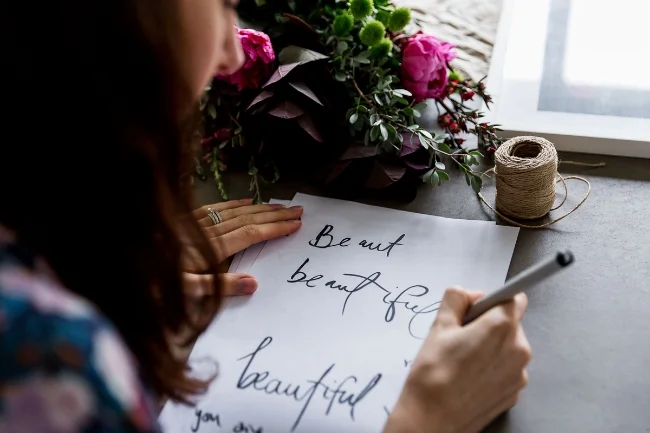 Beaut
beautiful
beautiful
you are